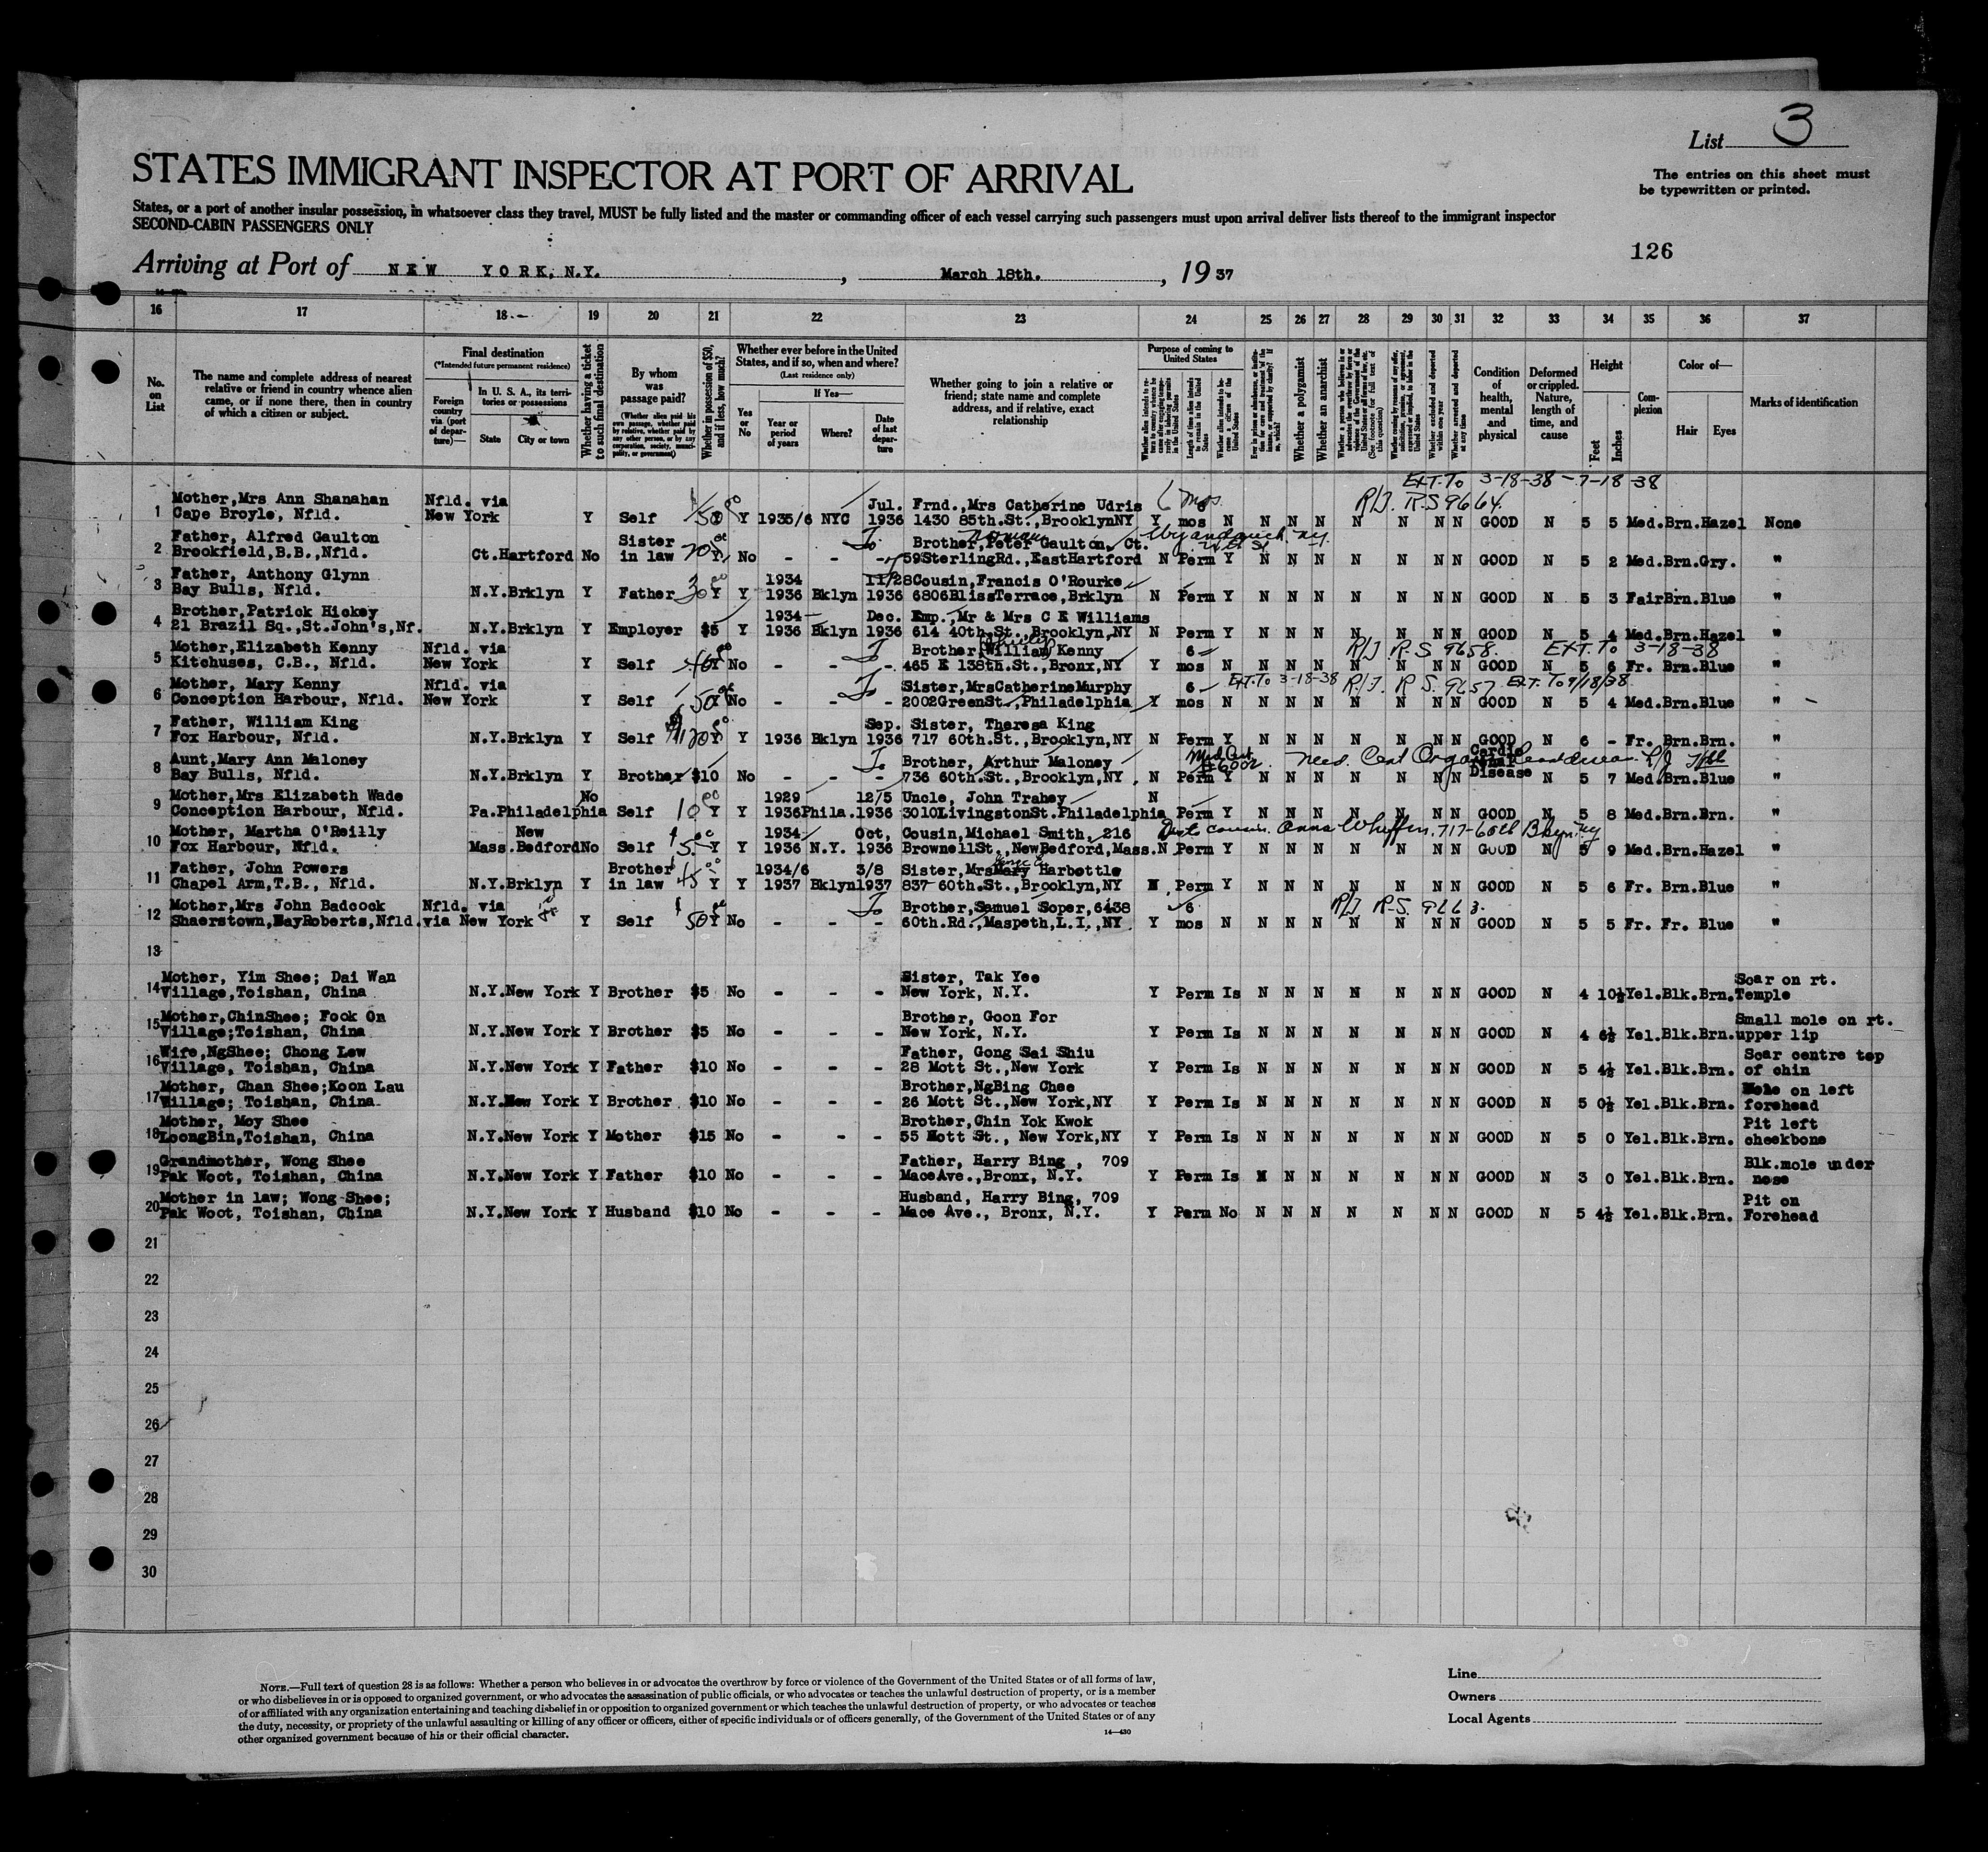 List 3
STATES IMMIGRANT INSPECTOR AT PORT OF ARRIVAL
The entries on this sheet must
be typewritten or printed.
States, or a port of another insular possession, in whatsoever class they travel, MUST be fully listed and the master or commanding officer of each vessel carrying such passengers must upon arrival deliver lists thereof to the immigrant inspector
SECOND-CABIN PASSENGERS ONLY
126
Arriving at Port of NEW YORK, N.Y. , March 18th. , 19 37
16 17 18 19 20 21 22 23 24 25 26 27 28 29 30 31 32 33 34 35 36 37
No. on List
The name and complete address of nearest
relative or friend in country whence alien
came, or if none there, then in country
of which a citizen or subject.
Final destination
(*Intended future permanent residence)
Foreign country via (port of departure)—
In U. S. A., its territories or possessions
State City or town
Whether having a ticket to such final destination
By whom was passage paid?
(Whether alien paid his own passage, whether paid by relative, whether paid by any other person, or by any corporation, society, municipality, or government)
Whether in possession of $50, and if less, how much?
Whether ever before in the United
States, and if so, when and where?
(Last residence only)
Yes or No
If Yes—
Year or period of years Where? Date of last departure
Whether going to join a relative or
friend; state name and complete
address, and if relative, exact
relationship
Purpose of coming to
United States
Whether a polygamist
Whether an anarchist
Whether arrested and deported at any time
Condition of health, mental and physical
Deformed or crippled. Nature, length of time, and cause
Height
Feet Inches
Complexion
Color of—
Hair Eyes
Marks of identification
EXT. To 3-18-38 - 7-18-38
Mother,Mrs Ann Shanahan Nfld. via Jul. Frnd.,Mrs Catherine Udris 6 mos R/J. R.S 9664.
1 Cape Broyle, Nfld. New York Y Self 50 Y 1935/6 NYC 1936 1430 85th.St.,BrooklynNY Y mos N N N N N N N N GOOD N 5 5 Med.Brn.Hazel None
Father, Alfred Gaulton Sister Brother,Peter Gaulton, Ct. Wyandanch. NY.
2 Brookfield,B.B.,Nfld. Ct.Hartford No in law 20 No - - - 59SterlingRd.,EastHartford N Perm Y N N N N N N N GOOD N 5 2 Med.Brn.Gry. "
Father, Anthony Glynn 1934 11/28 Cousin,Francis O'Rourke
3 Bay Bulls, Nfld. N.Y.Brklyn Y Father 30 Y Y 1936 Bklyn 1936 6806BlissTerrace,Brklyn N Perm Y N N N N N N N GOOD N 5 3 FairBrn.Blue "
Brother,Patrick Hickey 1934- Dec. Emp.,Mr & Mrs C E Williams
4 21 Brazil Sq.,St.John's,Nf. N.Y.Brklyn Y Employer $5 Y 1936 Bklyn 1936 614 40th.St.,Brooklyn,NY N Perm Y N N N N N N N GOOD N 5 4 Med.Brn.Hazel "
Mother,Elizabeth Kenny Nfld. via Brother,William Kenny 6 R/J R.S 9658. EXT. To 3-18-38
5 Kitchuses, C.B., Nfld. New York Y Self 40 No - - - 465 E 138th.St.,Bronx,NY Y mos N N N N N N N N GOOD N 5 6 Fr. Brn.Blue "
Mother, Mary Kenny Nfld. via Sister,MrsCatherineMurphy 6 Ext. To 3-18-38 R/J. R S. 9657 Ext. To 9/18/38
6 Conception Harbour, Nfld. New York Y Self 50 No - - - 2002GreenSt.,Philadelphia Y mos N N N N N N N N GOOD N 5 4 Med.Brn.Blue "
Father, William King Sep. Sister, Theresa King
7 Fox Harbour, Nfld. N.Y.Brklyn Y Self 120 Y Y 1936 Bklyn 1936 717 60th.St.,Brooklyn,NY N Perm Y N N N N N N N GOOD N 6 - Fr. Brn.Brn. "
Aunt,Mary Ann Maloney Brother, Arthur Maloney Med Cert #6002. Med. Cert Organic heart disease
8 Bay Bulls, Nfld. N.Y.Brklyn Y Brother $10 No - - - 736 60th.St.,Brooklyn,NY N Perm Y N N N N N N N Disease N 5 7 Med.Brn.Blue "
Mother,Mrs Elizabeth Wade No 1929 12/5 Uncle, John Trahey N
9 Conception Harbour, Nfld. Pa.Philadelphia Self 10 Y Y 1936Phila.1936 3010LivingstonSt.Philadelphia Perm Y N N N N N N N GOOD N 5 8 Med.Brn.Brn. "
Mother, Martha O'Reilly New 1934 Oct, Cousin,Michael Smith, 216 Dest cousin. Anna Whiffen. 717-60th Bklyn. NY
10 Fox Harbour, Nfld. Mass.BedfordNo Self 5 Y Y 1936 N.Y. 1936 BrownellSt.,NewBedford,Mass.N Perm Y N N N N N N N GOOD N 5 9 Med.Brn.Hazel "
Father, John Powers Brother 1934/6 3/8 Sister,MrsMary Harbottle
11 Chapel Arm,T.B., Nfld. N.Y.Brklyn Y in law 45 Y Y 1937 Bklyn1937 837 60th.St.,Brooklyn,NY N Perm Y N N N N N N N GOOD N 5 6 Fr. Brn.Blue "
Mother,Mrs John Badcock Nfld. via Brother,Samuel Soper,6438 6 R/J R-S. 9663.
12 Shaerstown,BayRoberts,Nfld.via New York Y Self 50 Y No - - - 60th.Rd.,Maspeth,L.I.,NY Y mos N N N N N N N N GOOD N 5 5 Fr. Fr. Blue "
13
Mother, Yim Shee; Dai Wan Sister, Tak Yee Scar on rt.
14 Village,Toishan, China N.Y.New York Y Brother $5 No - - - New York, N.Y. Y Perm Is N N N N N N N GOOD N 4 10½Yel.Blk.Brn.Temple
Mother,ChinShee; Fook On Brother, Goon For Small mole on rt.
15 Village;Toishan, China N.Y.New York Y Brother $5 No - - - New York, N.Y. Y Perm Is N N N N N N N GOOD N 4 6½ Yel.Blk.Brn.upper lip
Wife,NgShee; Chong Lew Father, Gong Sai Shiu Scar centre top
16 Village, Toishan, China N.Y.New York Y Father $10 No - - - 28 Mott St.,New York Y Perm Is N N N N N N N GOOD N 5 4½ Yel.Blk.Brn. of chin
Mother, Chan Shee;Koon Lau Brother,NgBing Chee Mole on left
17 Village; Toishan, China. N.Y.New York Y Brother $10 No - - - 26 Mott St.,New York,NY Y Perm Is N N N N N N N GOOD N 5 0½ Yel.Blk.Brn. forehead
Mother, Moy Shee Brother,Chin Yok Kwok Pit left
18 LoongBin,Toishan, China N.Y.New York Y Mother $15 No - - - 55 Mott St., New York,NY Y Perm Is N N N N N N N GOOD N 5 0 Yel.Blk.Brn. cheekbone
Grandmother, Wong Shee Father, Harry Bing , 709 Blk.mole under
19 Pak Woot, Toishan, China N.Y.New York Y Father $10 No - - - MaceAve.,Bronx, N.Y. Y Perm Is N N N N N N N GOOD N 3 0 Yel.Blk.Brn. nose
Mother in law; Wong Shee; Husband, Harry Bing, 709 Pit on
20 Pak Woot, Toishan, China N.Y.New York Y Husband $10 No - - - Mace Ave., Bronx, N.Y. Y Perm No N N N N N N N GOOD N 5 4½ Yel.Blk.Brn. Forehead
21
22
23
24
25
26
27
28
29
30
NOTE.—Full text of question 28 is as follows: Whether a person who believes in or advocates the overthrow by force or violence of the Government of the United States or of all forms of law,
or who disbelieves in or is opposed to organized government, or who advocates the assassination of public officials, or who advocates or teaches the unlawful destruction of property, or is a member
of or affiliated with any organization entertaining and teaching disbelief in or opposition to organized government or which teaches the unlawful destruction of property, or who advocates or teaches
the duty, necessity, or propriety of the unlawful assaulting or killing of any officer or officers, either of specific individuals or of officers generally, of the Government of the United States or of any
other organized government because of his or their official character.
14—430
Line
Owners
Local Agents